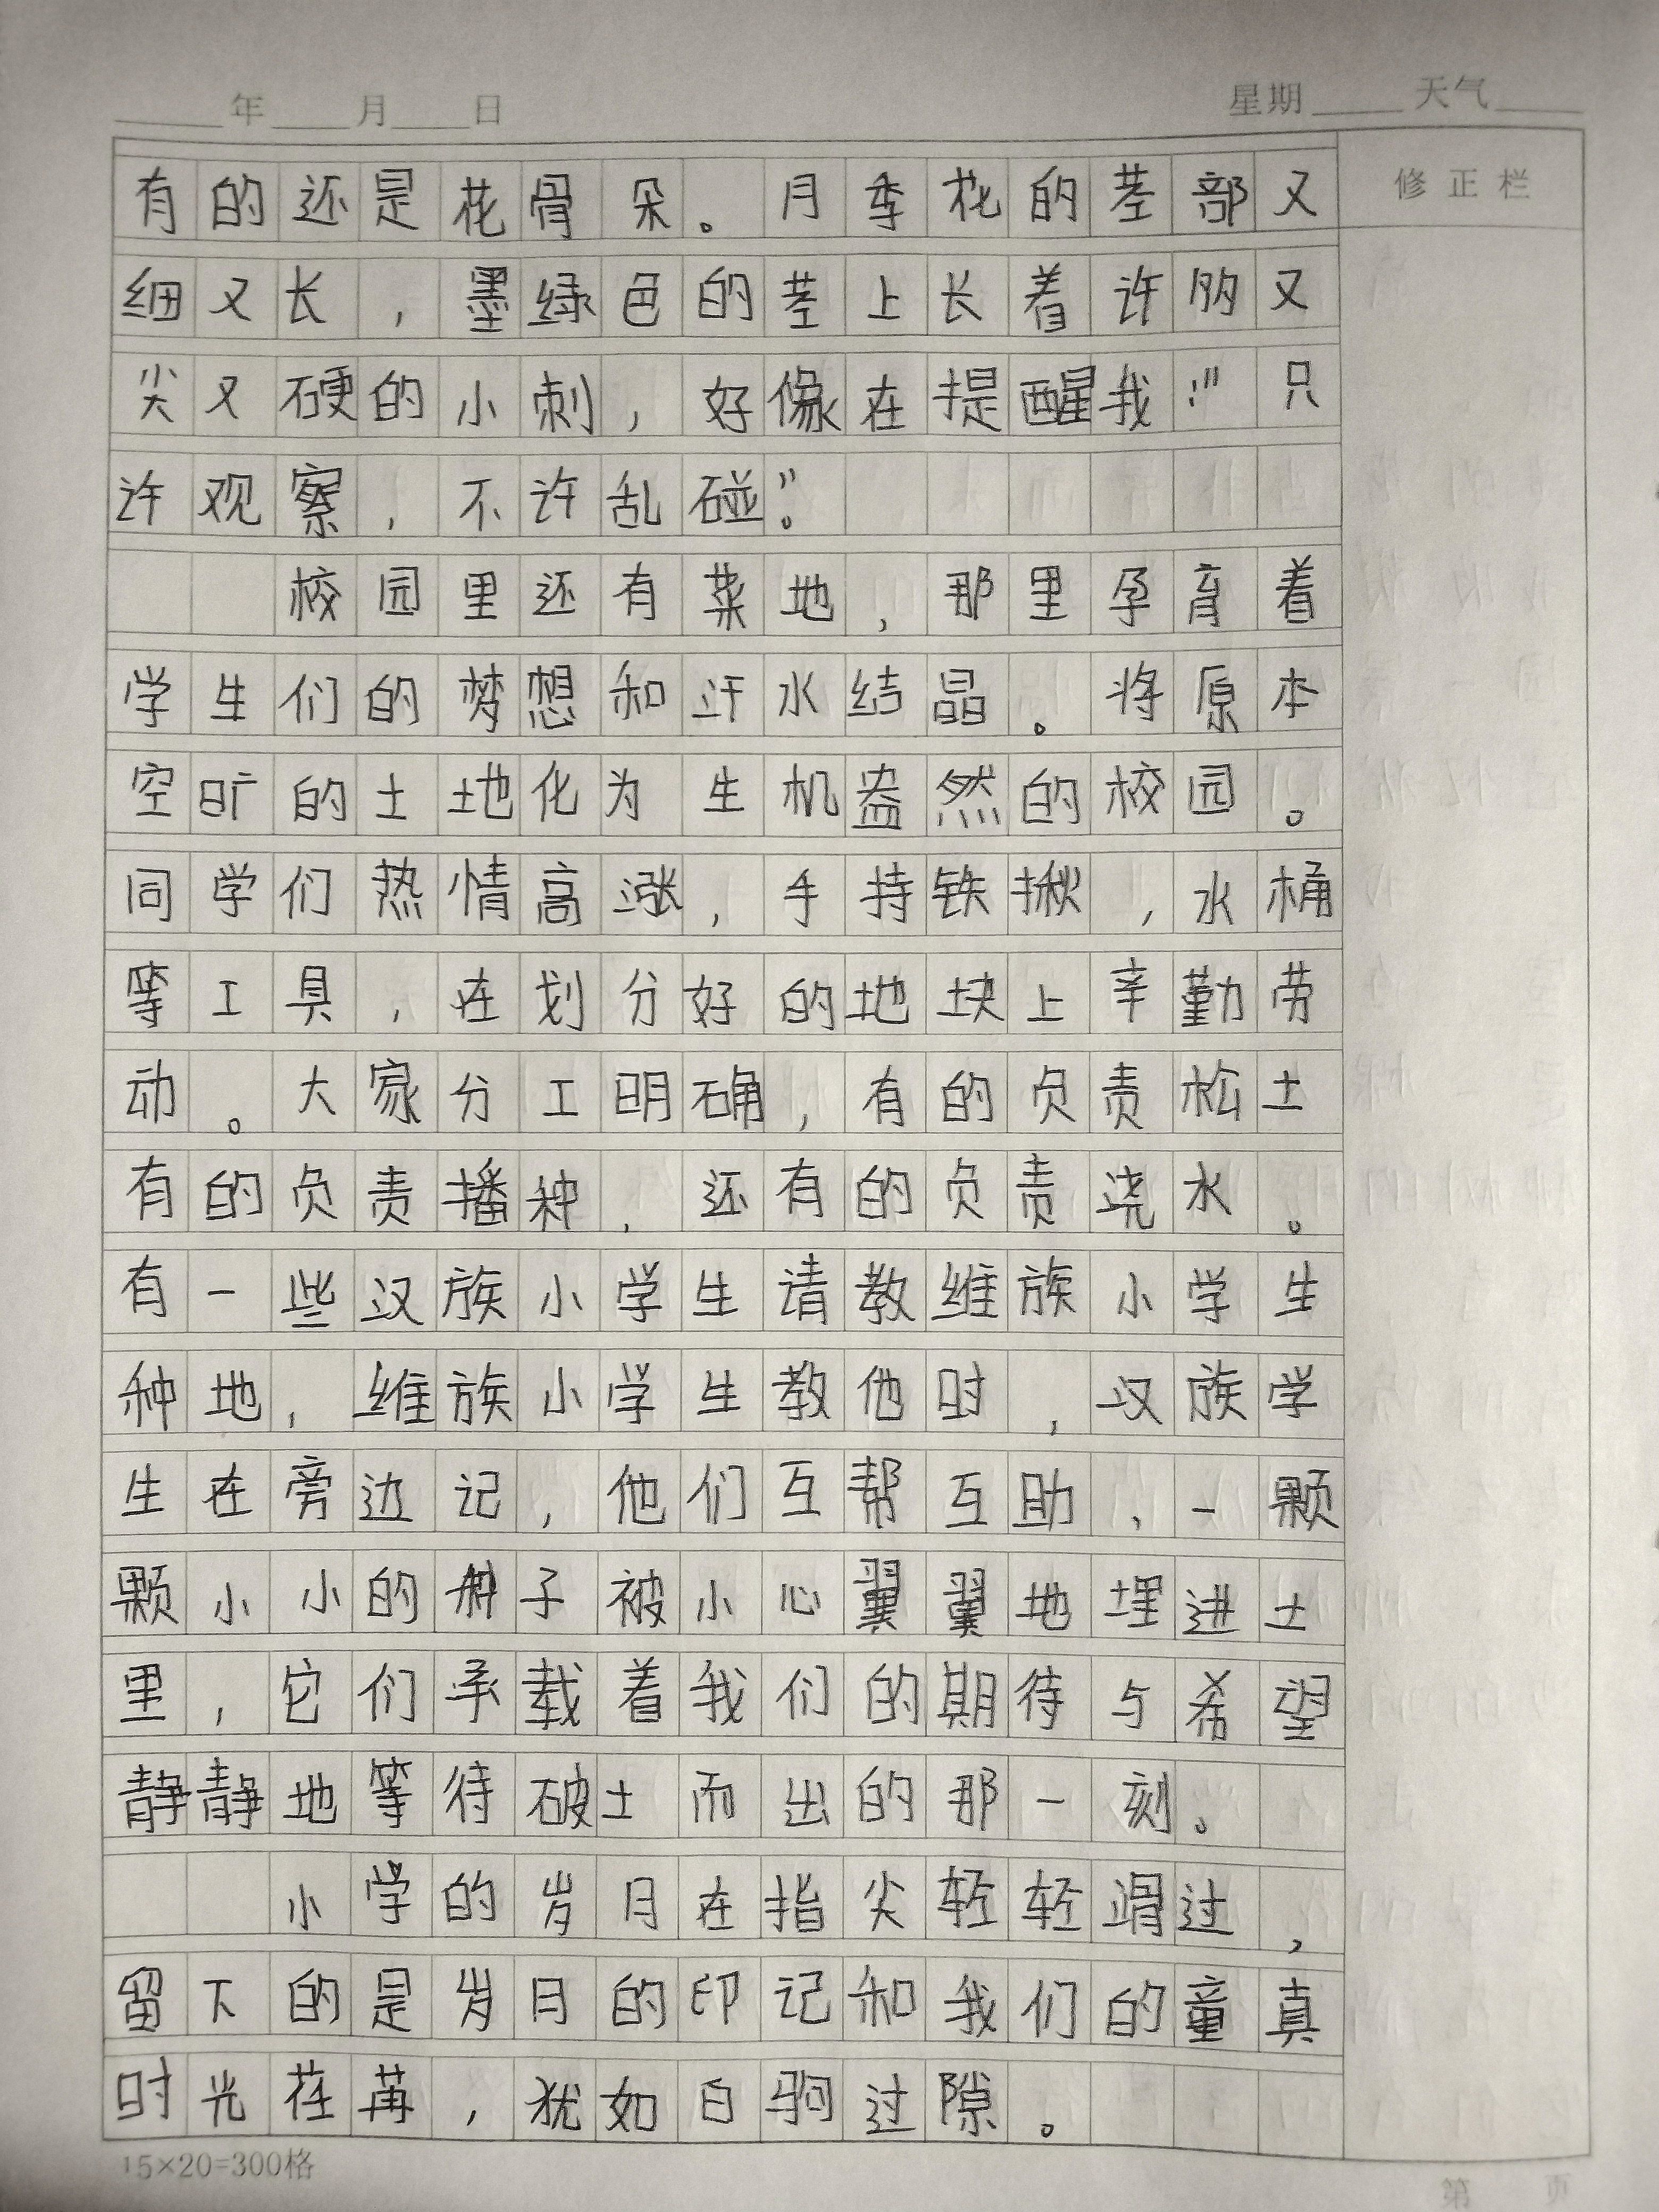 ____年____月____日 星期____天气____
修正栏
有的还是花骨朵。月季花的茎部又
细又长，墨绿色的茎上长着许多又
尖又硬的小刺，好像在提醒我:“只
许观察，不许乱碰”。
校园里还有菜地，那里孕育着
学生们的梦想和汗水结晶。将原本
空旷的土地化为生机盎然的校园。
同学们热情高涨，手持铁揪，水桶
等工具，在划分好的地块上辛勤劳
动。大家分工明确，有的负责松土
有的负责播种，还有的负责浇水。
有一些汉族小学生请教维族小学生
种地，维族小学生教他时，汉族学
生在旁边记，他们互帮互助，一颗
颗小小的种子被小心翼翼地埋进土
里，它们承载着我们的期待与希望
静静地等待破土而出的那一刻。
小学的岁月在指尖轻轻滑过，
留下的是岁月的印记和我们的童真
时光荏苒，犹如白驹过隙。
15×20=300格
第 页